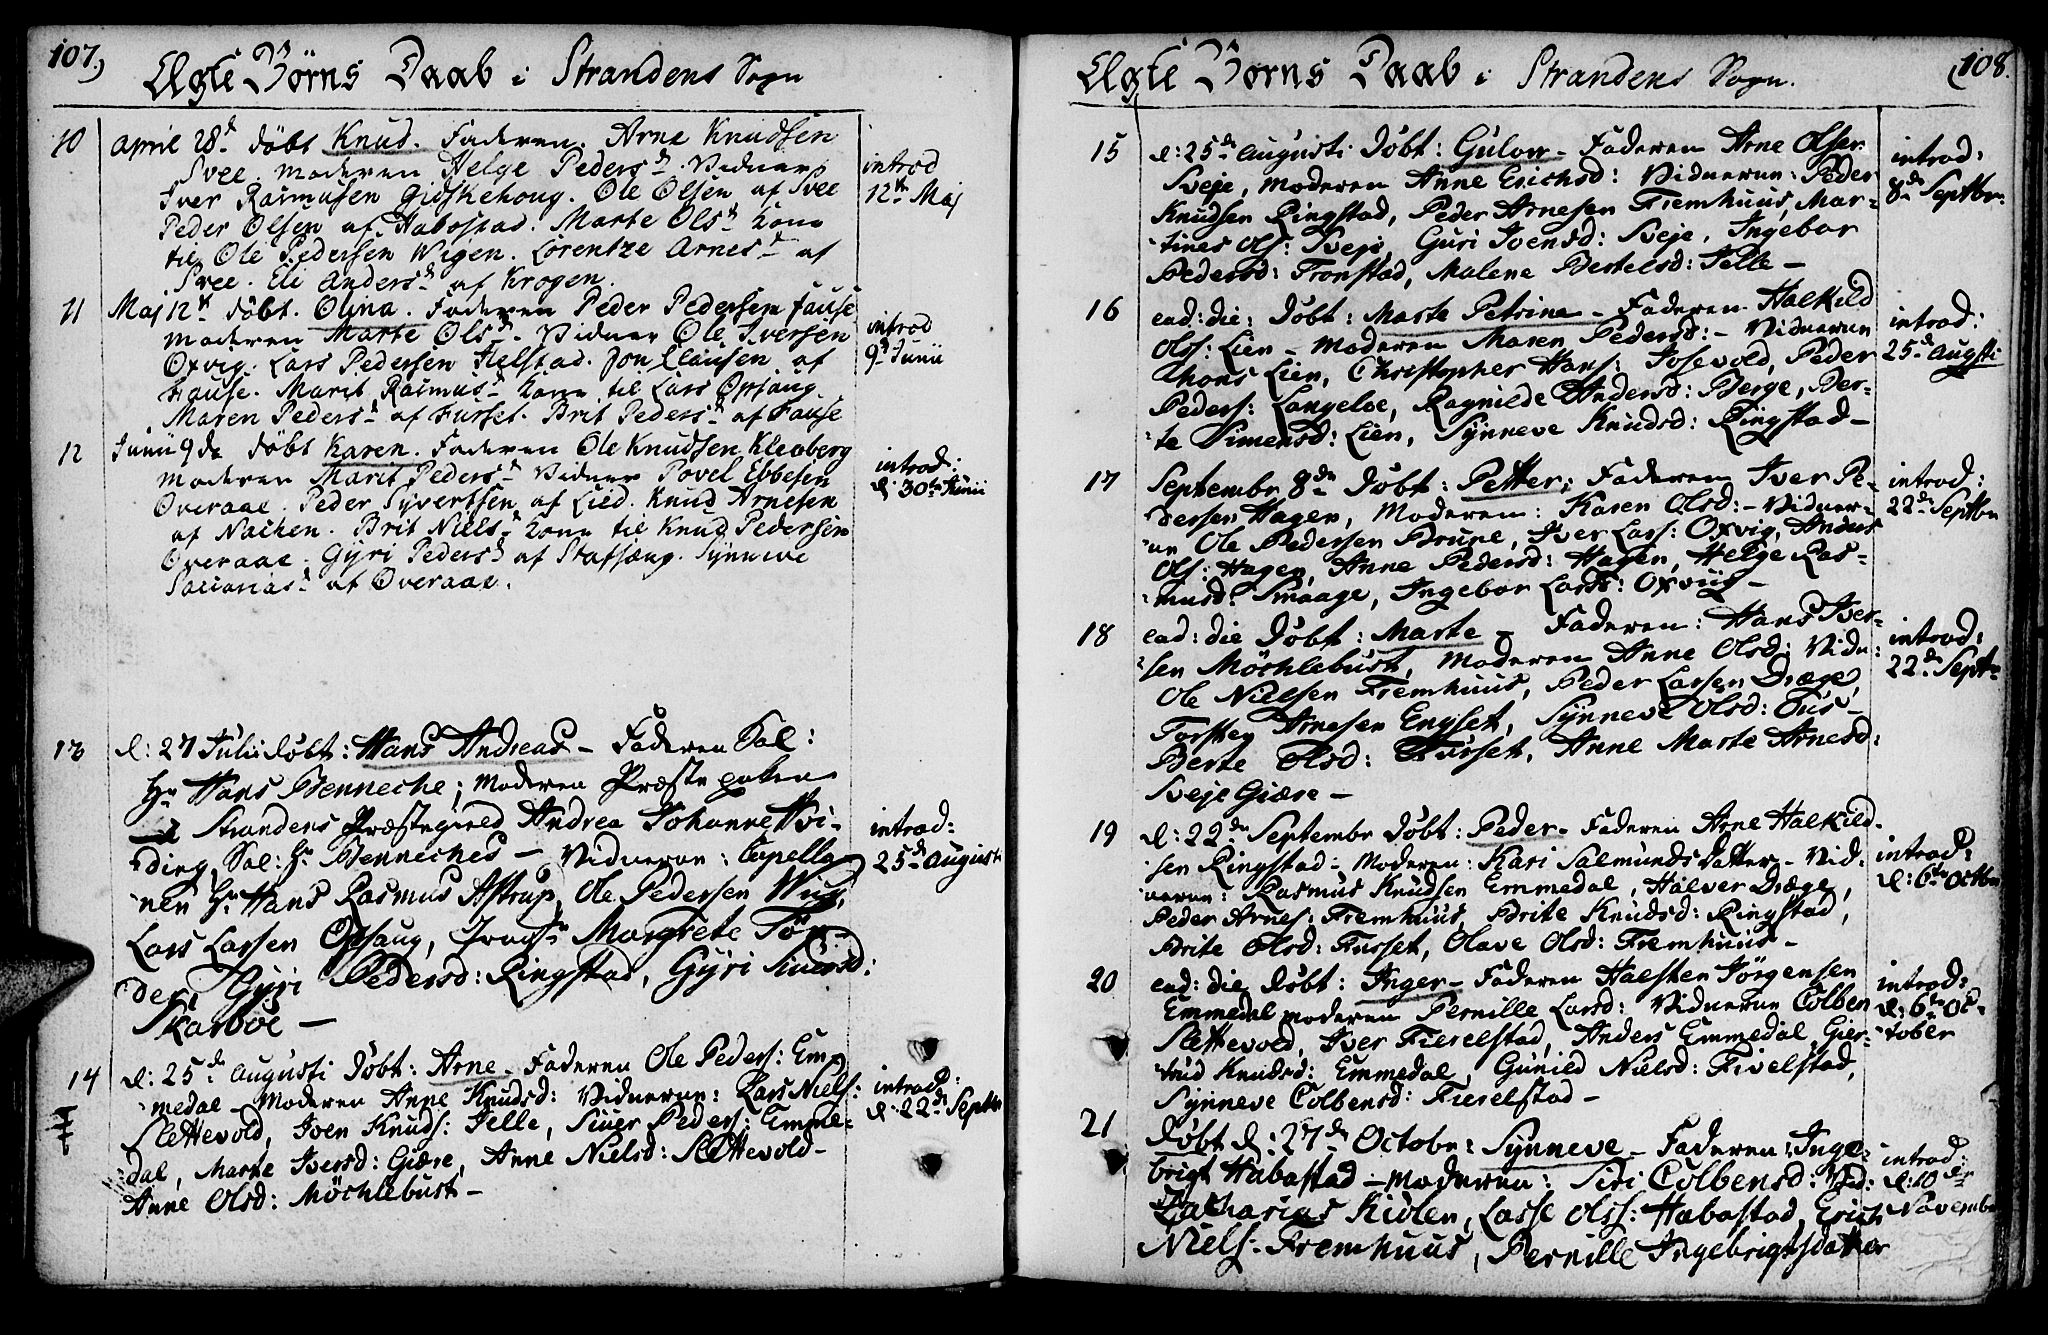 107.
Ægte Børns Daab i Strandens Sogn
10 April 28d døbt Knud. Faderen. Arne Knudsen
Svee. Moderen Helge Pedersd. Vidner
Iver Rasmusen Gidskehoug. Ole Olsen af Svee
Peder Olsen af Habostad. Marte Olsd kone
til Ole Pedersen Wigen. Lorentze Arnesd af
Svee. Eli Andersd af Krogen.
introd
12te Maj
11 Maj 12te døbt. Olina. Faderen Peder Pedersen Fause
Moderen Marte Olsd. Vidner Ole Iversen
Oxvig. Lars Pedersen Helstad. Jon Clausen af
Fause. Marit Rasmusd kone til Lars Opsaug
Maren Pedersd af Furset. Brit Pedersd af Fause
introd
9d Junii
12 Junii 9de døbt Karen. Faderen Ole Knudsen Kleoberg
Moderen Marit Pedersd Vidner Povel Ebbesen
Overaae. Peder Syvertsen af Lied. Knud Arnesen
af Nakken. Brit Nielsd kone til Knud Pedersen
Overaae. Gyri Pedersd af Stafsang. Synneve
Sacariasd af Overaae.
introd:
d. 30te Junii
13 d: 27 Julii døbt: Hans Andreas – Faderen Sal:
Hr Hans Benneche; Moderen Præste
Strandens Præstegield Andrea Johanne Hvi-
ding, Sal: Hr Benneches – Vidnerne: Capella-
nen Hr Hans Rasmus Astrup, Ole Pedersen Wiig,
Lars Larsen Opsaug, Margrete Tøn-
der, Gyri Pedersd: Ringstad, Gyri Siversd:
Skarboe –
introd:
25de Augusti
14 d: 25de Augusti Døbt: Arne – Faderen Ole Peders: Em-
medal – Moderen Anne Knudsd: Vidnerne: Lars Niels:
Slettevold, Iven Knuds: Jelle, Siver Peders: Emme-
dal, Marte Iversd: Giære, Anne Nielsd: Slettevold –
Anne Olsd: Möchlebust –
introd:
d: 22de Septbr
108.
Ægte Børns Daab i Strandens Sogn.
15 d: 25de Augusti Døbt: Gulow – Faderen Arne Olsen
Sveje, Moderen Anne Erichsd: Vidnerne: Peder
Knudsen Ringstad, Peder Arnesen Fremhuus, Mar-
tines Ols: Sveje, Guri Ivensd: Sveje, Ingebor
Pedersd: Tronstad, Malene Bertelsd: Jelle –
introd:
8de Septbr
16 ead: die: Døbt: Marte Petrine – Faderen Halkild
Olss: Lien – Moderen Maren Pedersd: – Vidnerne
Lien, Christopher Hans: Josevold, Peder
Peders: Langeloe, Ragnilde Andersd: Berge, Ber-
te Simensd: Lien, Synneve Knudsd: Ringstad –
introd:
25de Augsti
17 Septembr 8de Døbt: Petter; Faderen Iver Pe-
dersen Hagen, Moderen: Karen Olsd: – Vidner-
ne Ole Pedersen Brune, Iver Lars: Oxvig, Anders
Ols: Hagen, Anne Pedersd: Hagen, Helge Ras-
musd: Smaage, Ingebor Larsd: Oxviig –
introd:
22de Septbr
18 ead: die Døbt: Marte – Faderen: Hans Iver-
sen Möchlebust, Moderen Anne Olsd: Vidn:
Ole Nielsen Fremhuus, Peder Larsen Dræge,
Torsten Arnesen Engset, Synneve Olsd: Ous –
Berte Olsd: Furset, Anne Marte Arnesd:
Sveje Giære –
introd:
22de Septr
19 d: 22de Septembr Døbt: Peder – Faderen Arne Halkild-
sen Ringstad – Moderen: Kari Salmunds Datter – Vid-
nerne: Rasmus Knudsen Emmedal, Halver Dræge,
Peder Arnes: Fremhuus, Brite Knudsd: Ringstad,
Brite Olsd: Furset, Olave Olsd: Fremhuus –
introd:
d: 6te Octbr
20 ead: die Døbt: Inger – Faderen Halsten Jørgensen
Emmedal Moderen Pernille Larsd: Vidnerne Colben
Slettevold, Iver Fierelstad, Anders Emmedal, Gier-
trud Knudsd: Emmedal, Gunild Nielsd: Fivelstad,
Synneve Colbensd: Fierelstad –
introd:
d: 6te Oc-
tober
21 Døbt d: 27de Octobr: Synneve – Faderen: Inge-
brigt Habostad – Moderen: Siri Colbensd: Vid:
Zacharias Kiølen, Lasse Olss: Habostad, Erich
Niels: Fremhuus, Pernille Ingebrigtsdatter
introd:
d: 10de
Novembr